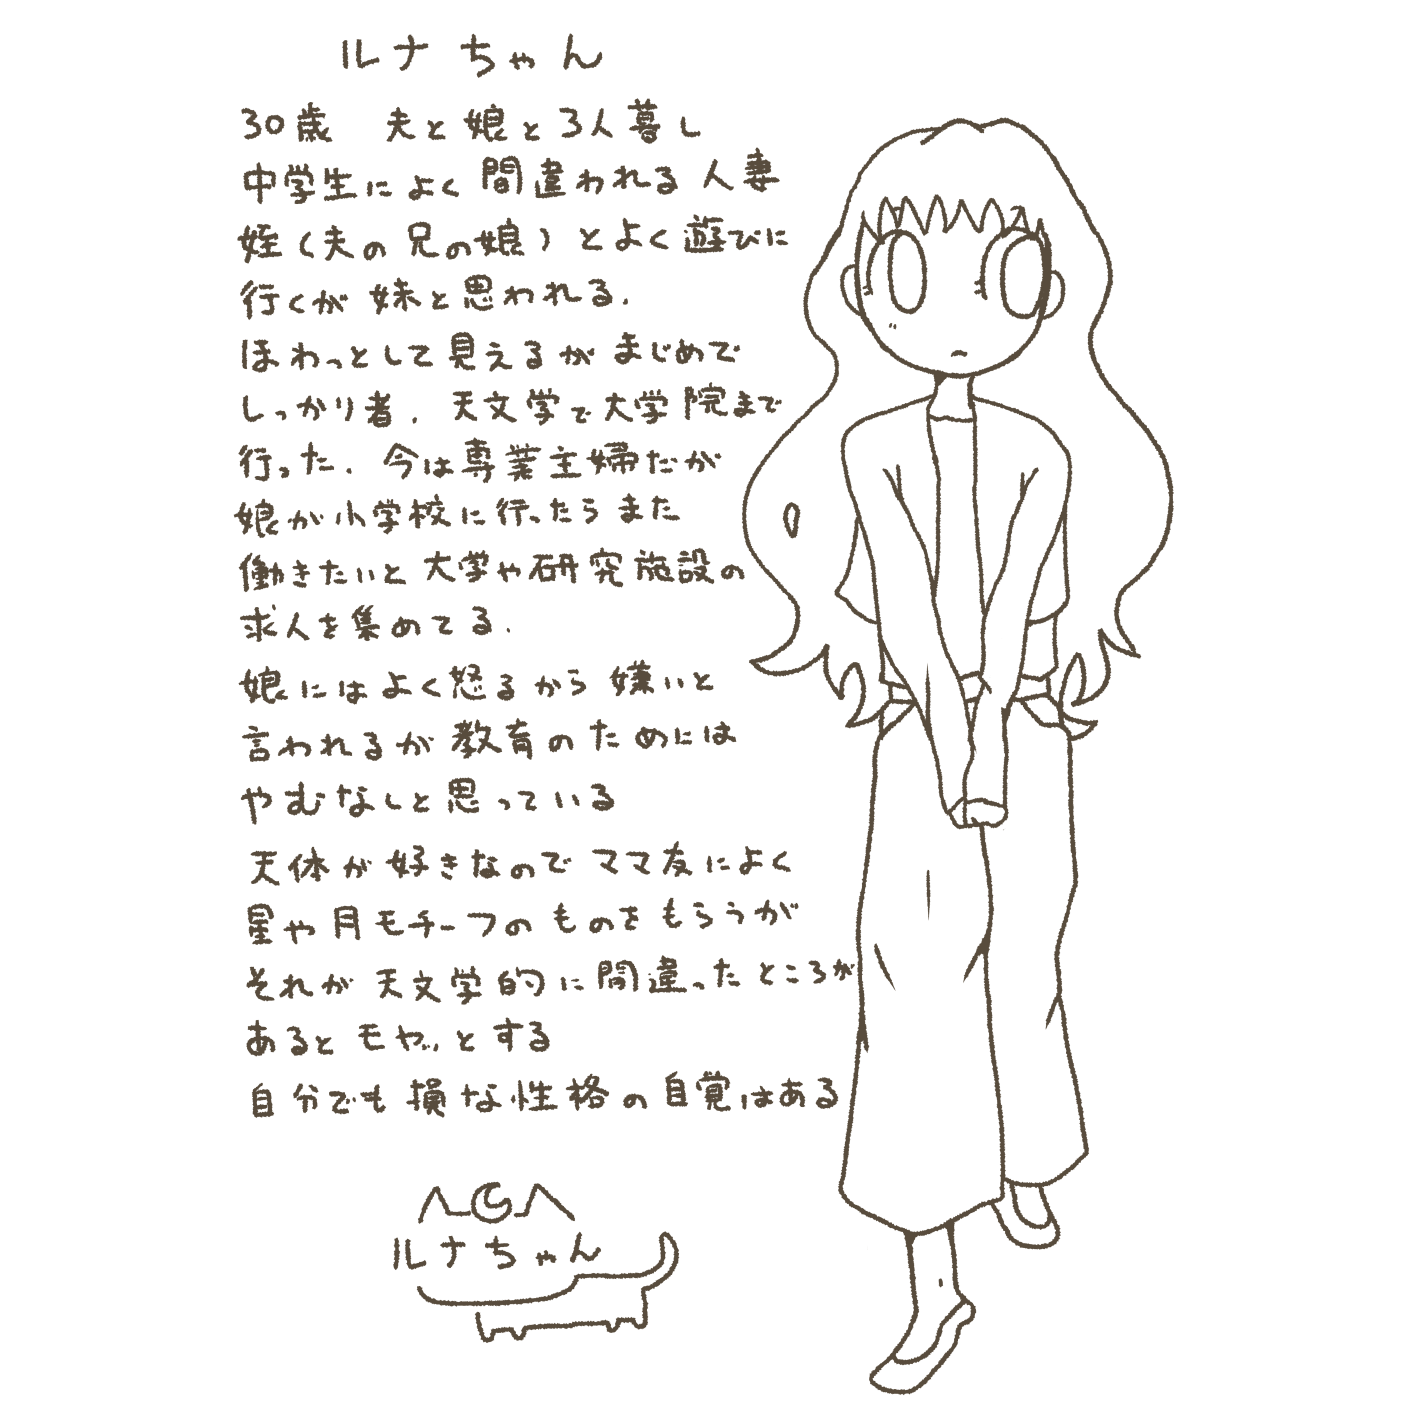 ルナちゃん
30歳 夫と娘と3人暮し
中学生によく間違われる人妻
姪(夫の兄の娘)とよく遊びに
行くが妹と思われる.
ほわっとして見えるがまじめで
しっかり者. 天文学で大学院まで
行った. 今は専業主婦だが
娘が小学校に行ったらまた
働きたいと大学や研究施設の
求人を集めてる.
娘にはよく怒るから嫌いと
言われるが教育のためには
やむなしと思っている
天体が好きなのでママ友によく
星や月モチーフのものをもらうが
それが天文学的に間違ったところが
あるとモヤッとする
自分でも損な性格の自覚はある
ルナちゃん